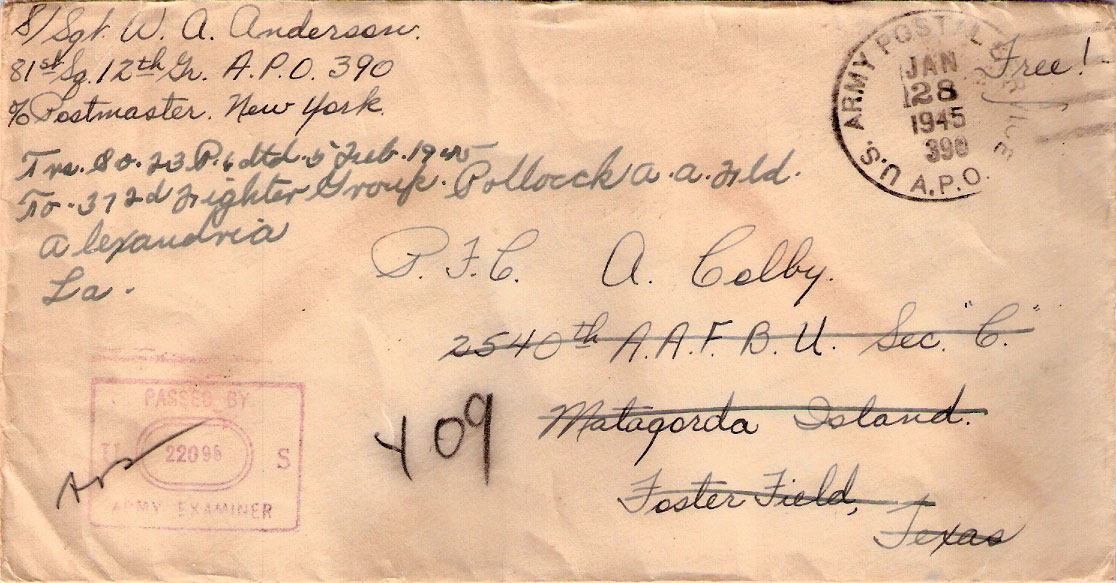 S/Sgt. W. A. Anderson.
81st Sq. 12th Gr. A.P.O. 390
℅ Postmaster. New York.
Trs. So. 23 P. 6 dtd. 5 Feb. 1945
To. 372d Fighter Group. Pollocck a.a. Fld.
Alexandria
La.
U.S. ARMY POSTAL SERVICE
JAN
28
1945
390
A.P.O.
Free!
P.F.C. A. Colby.
2540th A.A.F.B.U. Sec. "C."
Matagorda Island.
Foster Field,
Texas
409
PASSED BY
22096
S
ARMY EXAMINER